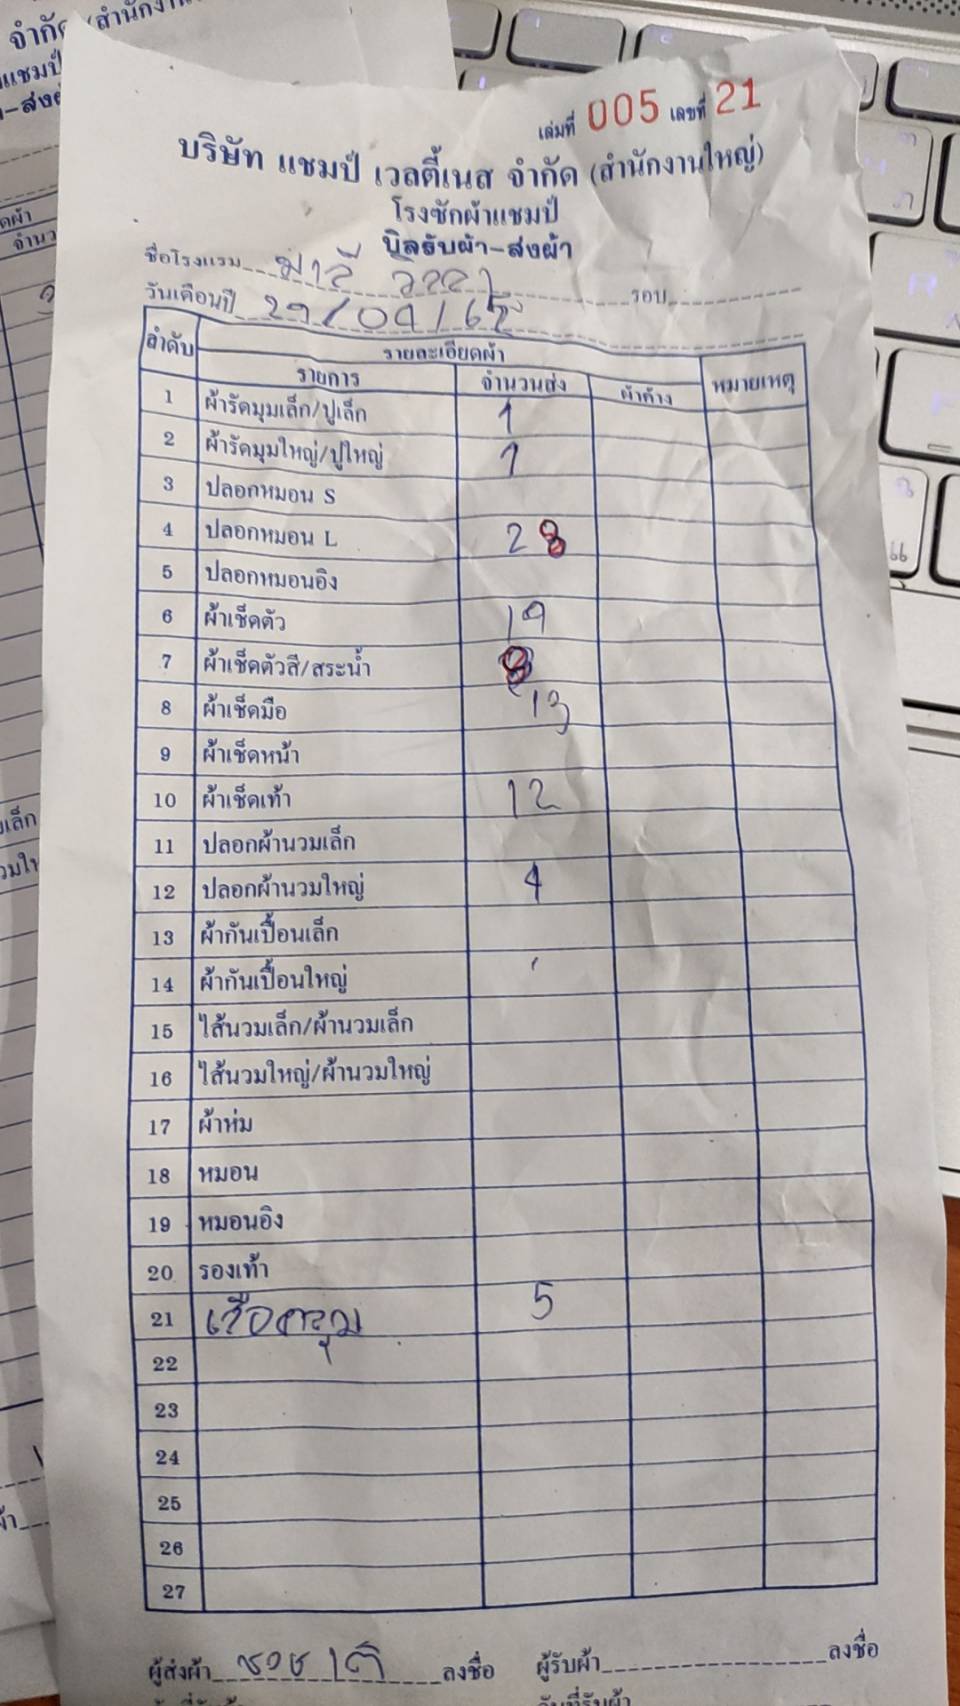 เล่มที่ 005 เลขที่ 21
บริษัท แชมป์ เวลตี้เนส จำกัด (สำนักงานใหญ่)
โรงซักผ้าแชมป์
บิลรับผ้า-ส่งผ้า
ชื่อโรงแรม มาลี วิลล่า รอบ
วันเดือนปี
ลำดับ รายละเอียดผ้า หมายเหตุ
รายการ จำนวนส่ง ผ้าค้าง
1 ผ้ารัดมุมเล็ก/ปูเล็ก 1
2 ผ้ารัดมุมใหญ่/ปูใหญ่ 1
3 ปลอกหมอน S
4 ปลอกหมอน L 28
5 ปลอกหมอนอิง
6 ผ้าเช็ดตัว 19
7 ผ้าเช็ดตัวสี/สระน้ำ 8
8 ผ้าเช็ดมือ 13
9 ผ้าเช็ดหน้า
10 ผ้าเช็ดเท้า 12
11 ปลอกผ้านวมเล็ก
12 ปลอกผ้านวมใหญ่ 4
13 ผ้ากันเปื้อนเล็ก
14 ผ้ากันเปื้อนใหญ่
15 ไส้นวมเล็ก/ผ้านวมเล็ก
16 ไส้นวมใหญ่/ผ้านวมใหญ่
17 ผ้าห่ม
18 หมอน
19 หมอนอิง
20 รองเท้า
21 เสื้อคลุม 5
22
23
24
25
26
27
ผู้ส่งผ้า ลงชื่อ ผู้รับผ้า ลงชื่อ